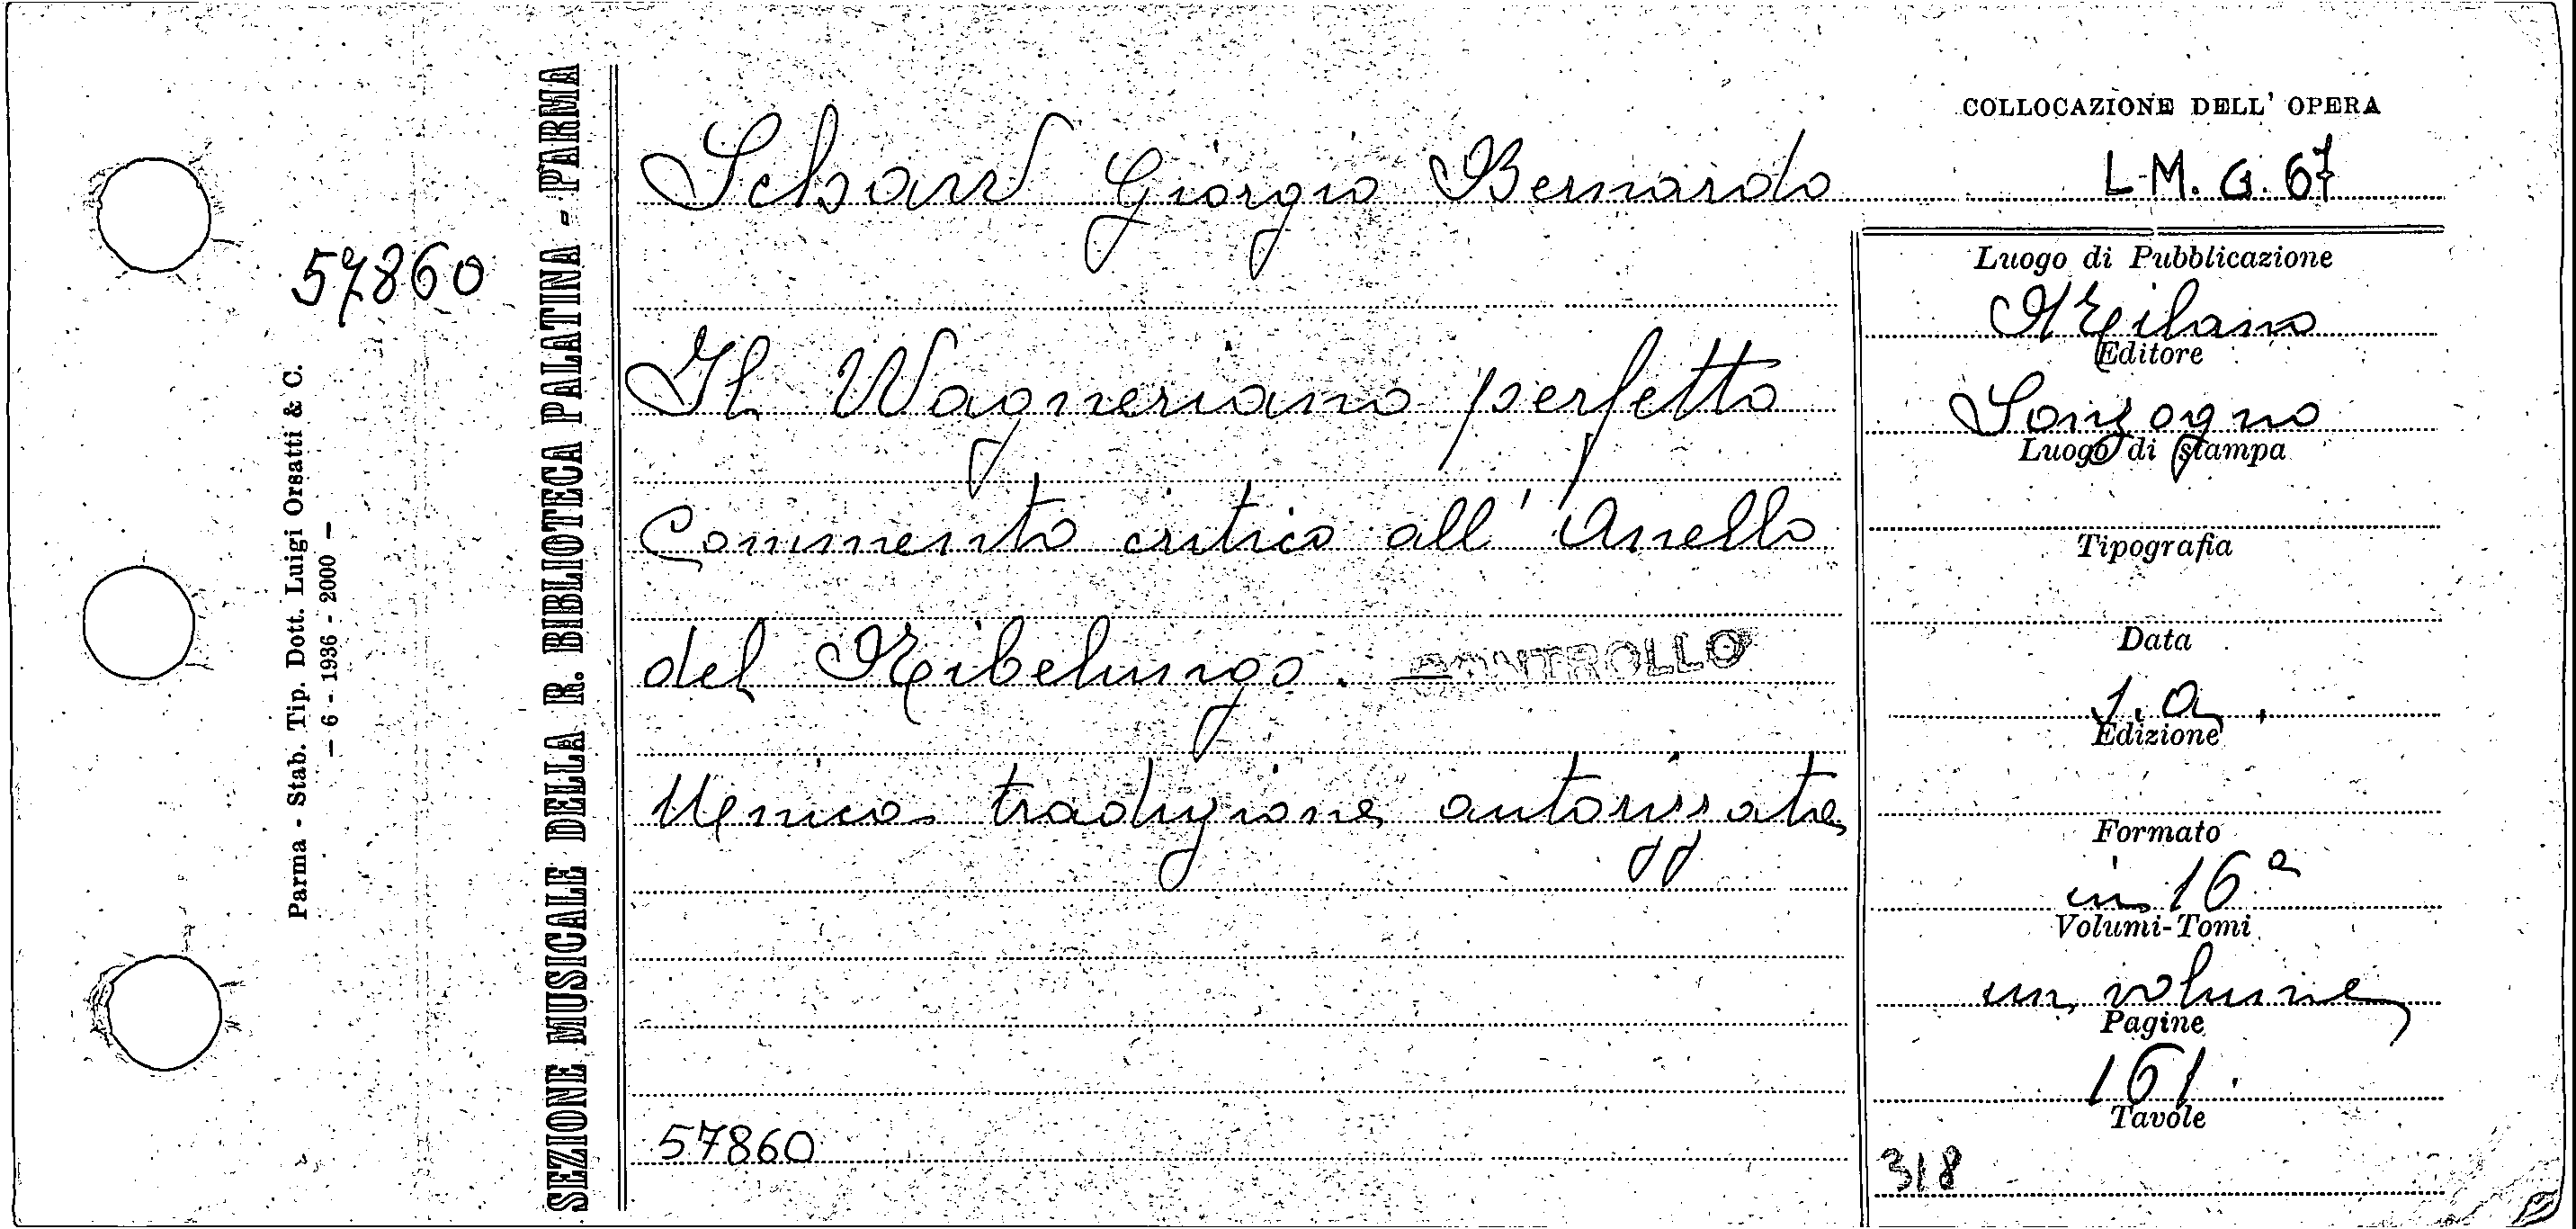 COLLOCAZIONE DELL' OPERA
L.M. G. 67
Schaw Giorgio Bernardo
Il Wagneriano perfetto
Commento critico all' Anello
del Nibelungo.
CONTROLLO
Unica traduzione autorizzata
57860
Luogo di Pubblicazione
Milano
Editore
Sonzogno
Luogo di stampa
Tipografia
Data
s.a.
Edizione
Formato
in 16°
Volumi-Tomi
un volume
Pagine
161.
Tavole
318
57860
SEZIONE MUSICALE DELLA R. BIBLIOTECA PALATINA - PARMA
Parma - Stab. Tip. Dott. Luigi Orsatti & C.
- 6 - 1936 - 2000 -